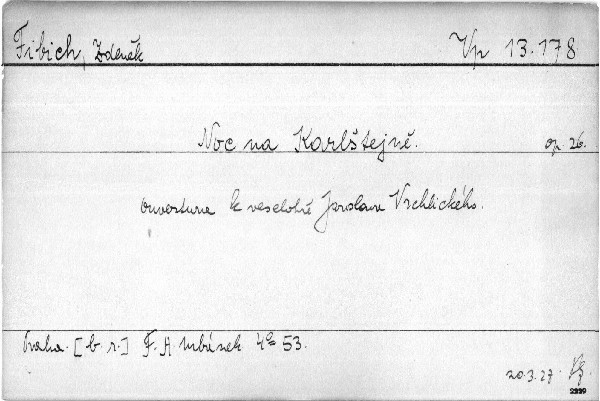 Fibich, Zdeněk Vp 13.178
Noc na Karlštejně. op. 26.
Ouvertura k veselohře Jaroslava Vrchlického.
Praha. [b. r.] F. A Urbánek 4° 53.
20.3.27.
2239